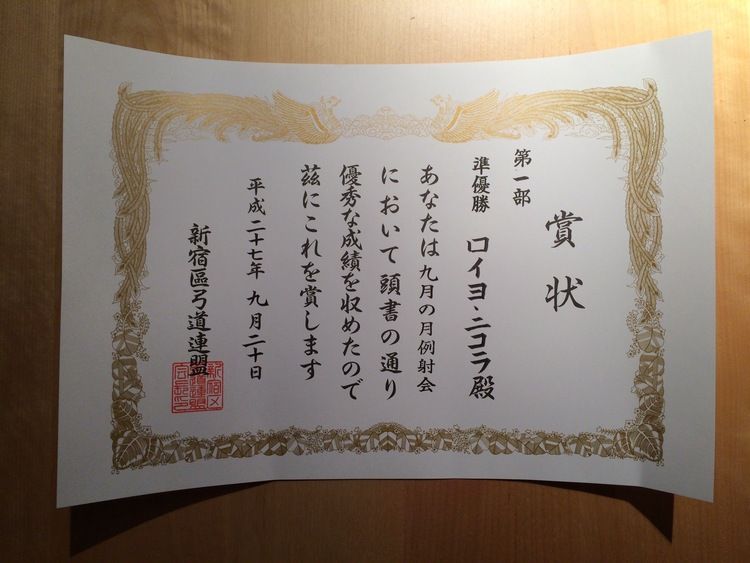 賞状
第一部
準優勝 ロイヨ・ニコラ殿
あなたは九月の月例射会
において頭書の通り
優秀な成績を収めたので
茲にこれを賞します
平成二十七年 九月二十日
新宿區弓道連盟